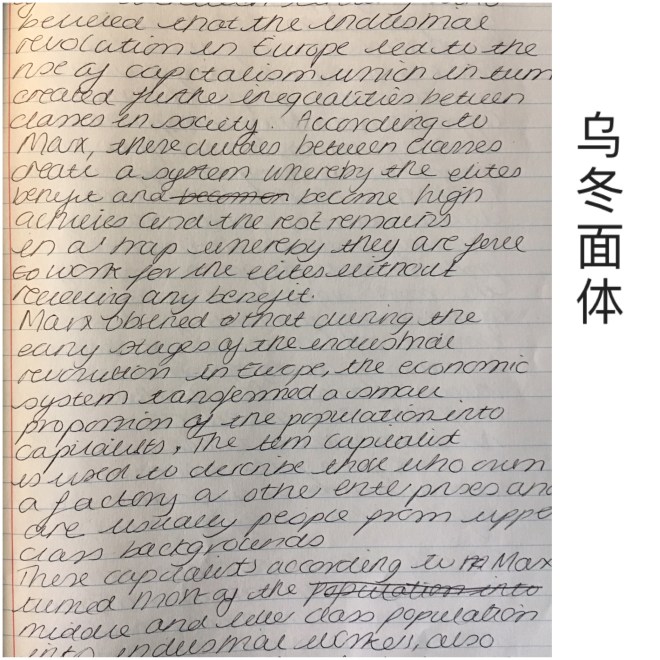 believed that the industrial
revolution in Europe lead to the
rise of capitalism which in turn
created further inequalities between
classes in society. According to
Marx, there divides between classes
create a system whereby the elites
benefit and becomes become high
achieves and the rest remains
in a trap whereby they are force
to work for the elites without
receiving any benefit.
Marx observed that during the
early stages of the industrial
revolution in Europe, the economic
system transformed a small
proportion of the population into
capitalists. The term capitalist
is used to describe those who own
a factory or other enterprises and
are usually people from uppe
class backgrounds
These capitalists according to Marx
turned most of the population into
middle and lower class population
into industrial workers, also
乌冬面体